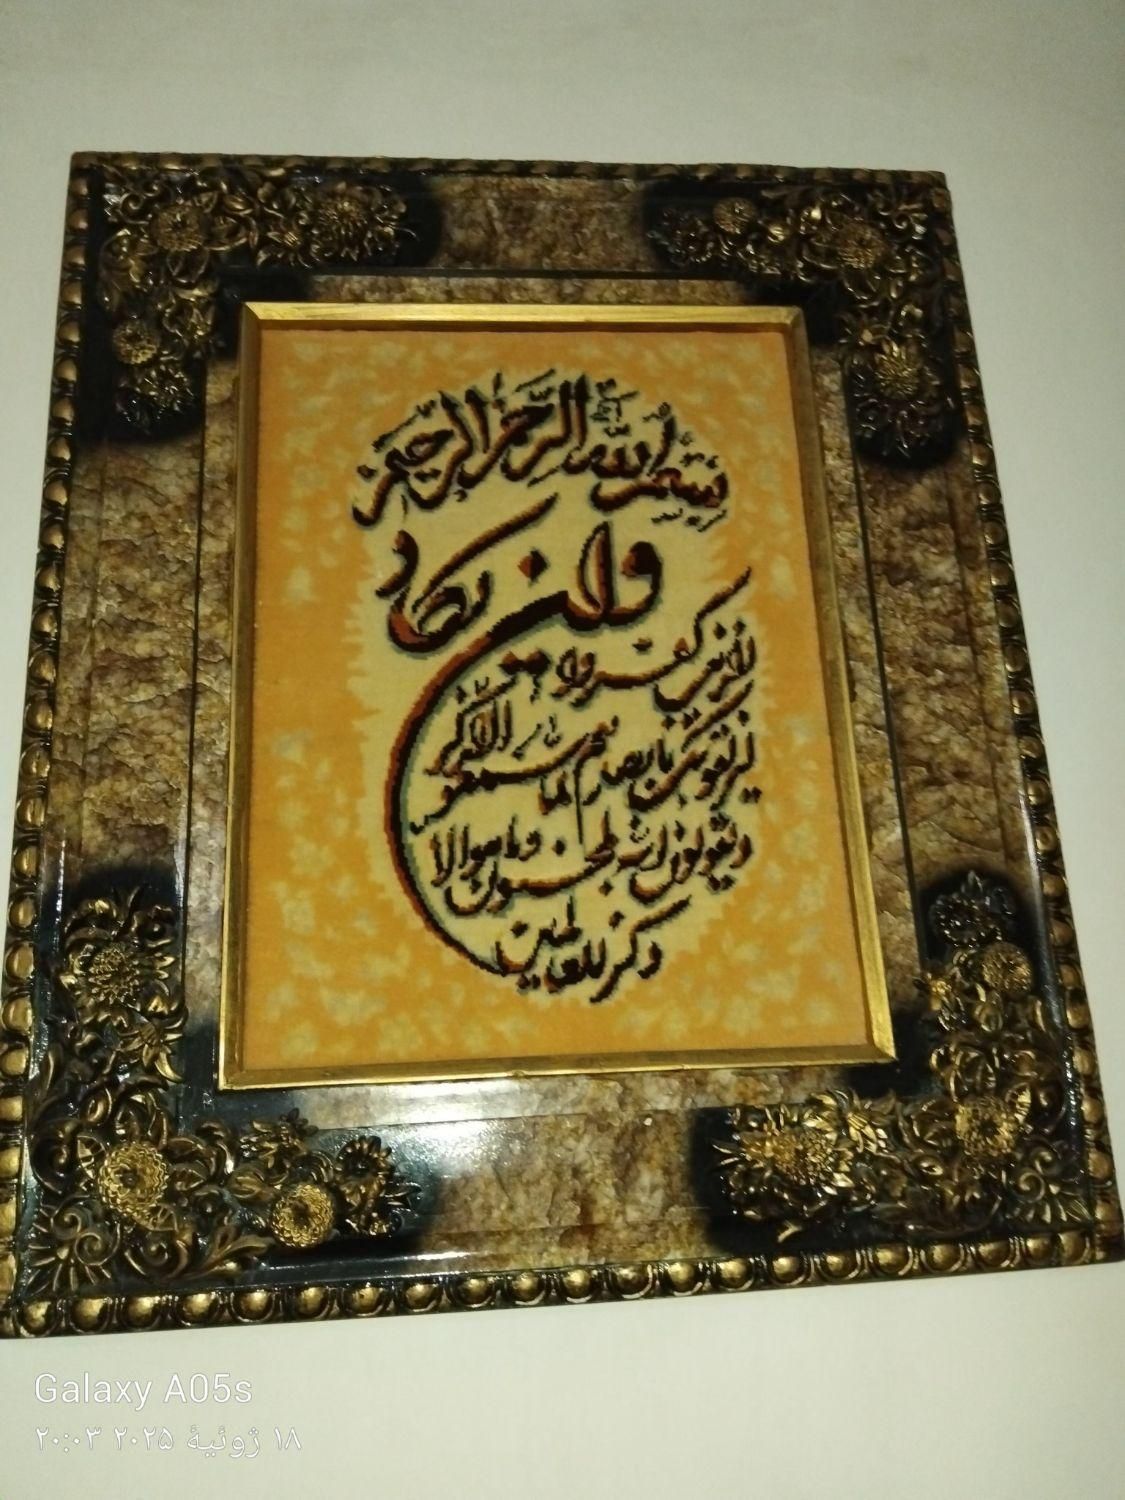 بسم الله الرحمن الرحیم
وان یکاد
الذین کفروا
لیزلقونک بابصارهم لما سمعوا الذکر
ویقولون انه لمجنون وما هو الا
ذکر للعالمین
Galaxy A05s
۱۸ ژوئیهٔ ۲۰۲۵ ۲۰:۰۳